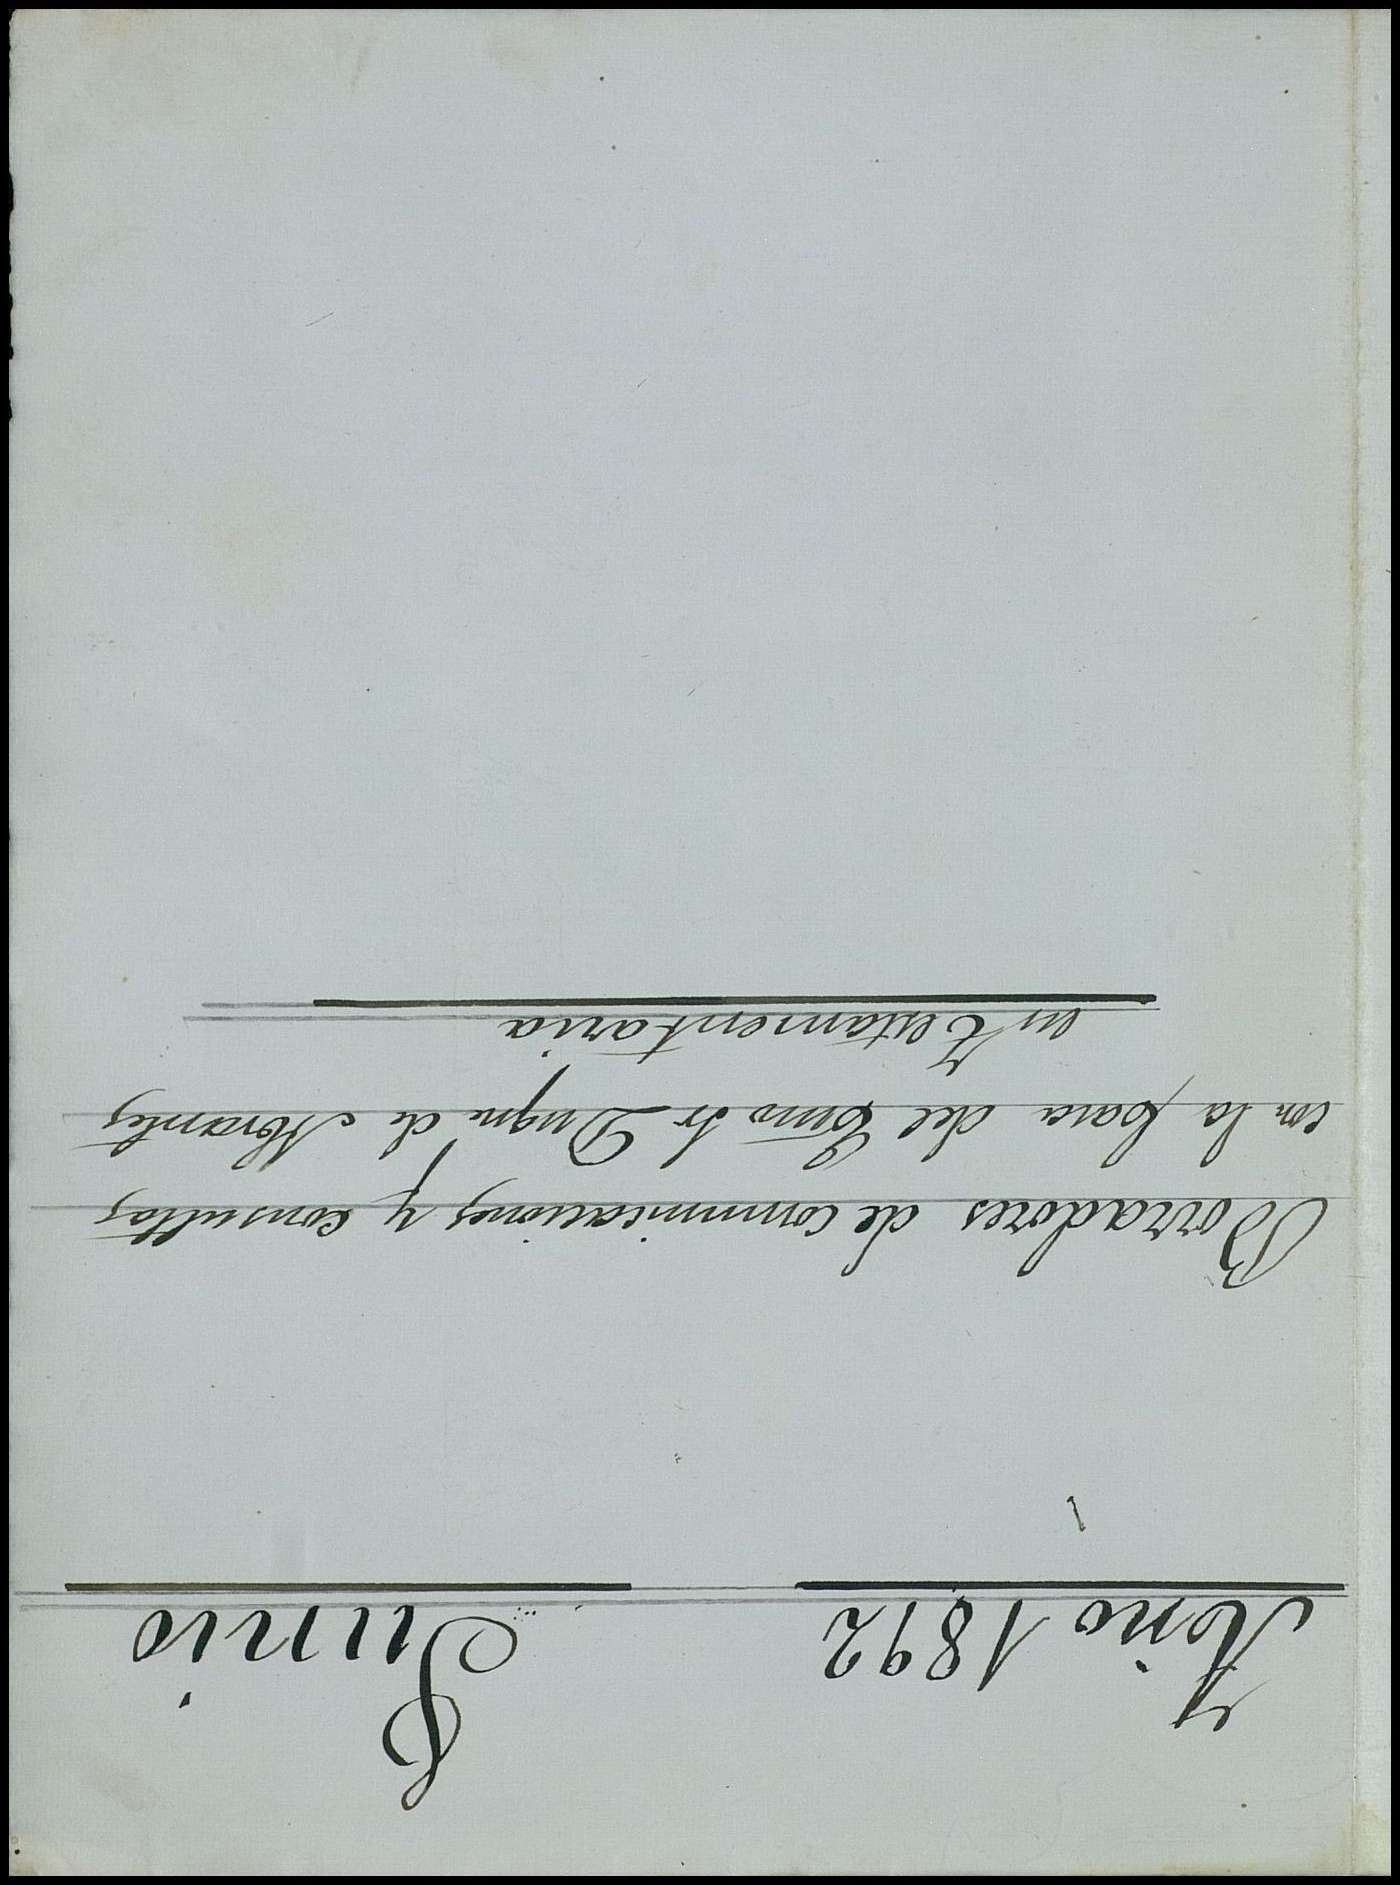 Año 1892 Junio
Borradores de comunicaciones y consultas
con la Casa del Excmo Sr Duque de Abrantes
en Testamentaria